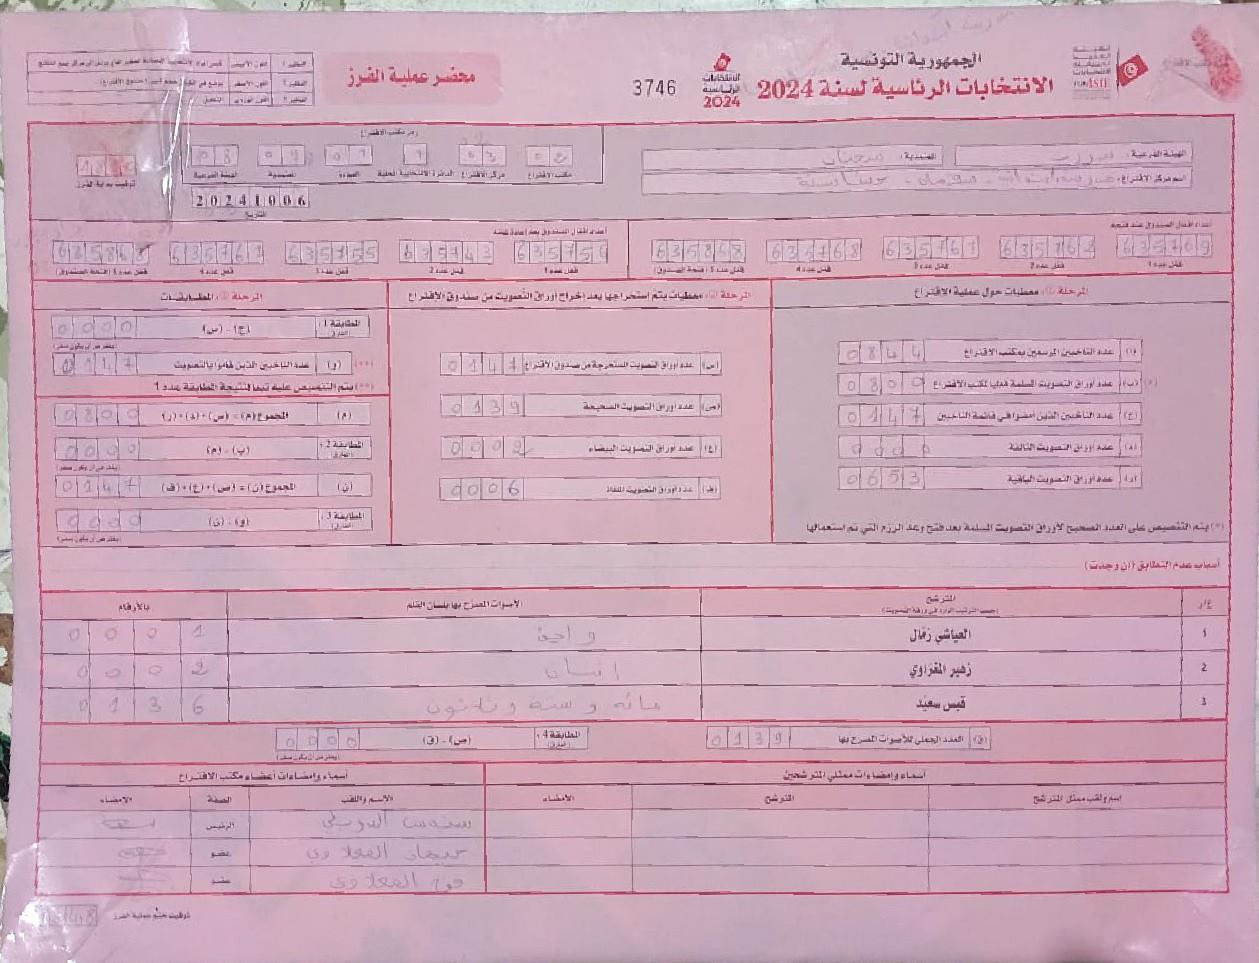 الجمهورية التونسية
الانتخابات الرئاسية لسنة 2024
الانتخابات الرئاسية 2024
3746
محضر عملية الفرز
رمز مكتب الاقتراع
02 03 1 07 09 08
مكتب الاقتراع مركز الاقتراع الدائرة الانتخابية المحلية العمادة المعتمدية الهيئة الفرعية
توقيت بداية الفرز
20241006
التاريخ
الهيئة الفرعية :
المعتمدية : سجنان
اسم مركز الاقتراع :
أعداد أقفال الصندوق عند فتحه
635709 635762 635761 635768 635868
قفل عدد 1 قفل عدد 2 قفل عدد 3 قفل عدد 4 قفل عدد 5 (فتحة الصندوق)
أعداد أقفال الصندوق بعد إعادة غلقه
635756 635743 635755 635761 635868
قفل عدد 1 قفل عدد 2 قفل عدد 3 قفل عدد 4 قفل عدد 5 (فتحة الصندوق)
المرحلة ①: معطيات حول عملية الاقتراع
(أ) عدد الناخبين المرسمين بمكتب الاقتراع 0844
(*) (ب) عدد أوراق التصويت المسلمة فعليا لمكتب الاقتراع 0800
(ج) عدد الناخبين الذين أمضوا في قائمة الناخبين 0147
(د) عدد أوراق التصويت التالفة 0000
(ر) عدد أوراق التصويت الباقية 0653
(*) يتم التنصيص على العدد الصحيح لأوراق التصويت المسلمة بعد فتح وعد الرزم التي تم استعمالها
المرحلة ②: معطيات يتم استخراجها بعد إخراج أوراق التصويت من صندوق الاقتراع
(س) عدد أوراق التصويت المستخرجة من صندوق الاقتراع 0147
(ص) عدد أوراق التصويت الصحيحة 0139
(ع) عدد أوراق التصويت البيضاء 0002
(ف) عدد أوراق التصويت الملغاة 0006
المرحلة ③: المطابقات
المطابقة 1: (الفارق) (ج) - (س) 0000
(يفترض أن يكون صفر)
(**) (و) عدد الناخبين الذين قاموا بالتصويت 0147
(**) يتم التنصيص عليه تبعا لنتيجة المطابقة عدد 1
(م) المجموع (م) = (س)+(د)+(ر) 0800
المطابقة 2: (الفارق) (ب) - (م) 0000
(يفترض أن يكون صفر)
(ن) المجموع (ن) = (ص)+(ع)+(ف) 0147
المطابقة 3: (الفارق) (و) - (ن) 0000
(يفترض أن يكون صفر)
أسباب عدم التطابق (إن وجدت)
ع/ر المترشح الأصوات المصرح بها بلسان القلم بالأرقام
(حسب الترتيب الوارد في ورقة التصويت)
1 العياشي زمّال واحد 0001
2 زهير المغزاوي إثنان 0002
3 قيس سعيّد مائة و ستة و ثلاثون 0136
(ق) العدد الجملي للأصوات المصرح بها 0139
المطابقة 4: (الفارق) (ص) - (ق) 0000
(يفترض أن يكون صفر)
أسماء وإمضاءات ممثلي المترشحين
اسم ولقب ممثل المترشح المترشح الامضاء
أسماء وإمضاءات أعضاء مكتب الاقتراع
الاسم واللقب الصفة الامضاء
الرئيس
عضو
عضو
توقيت ختم عملية الفرز